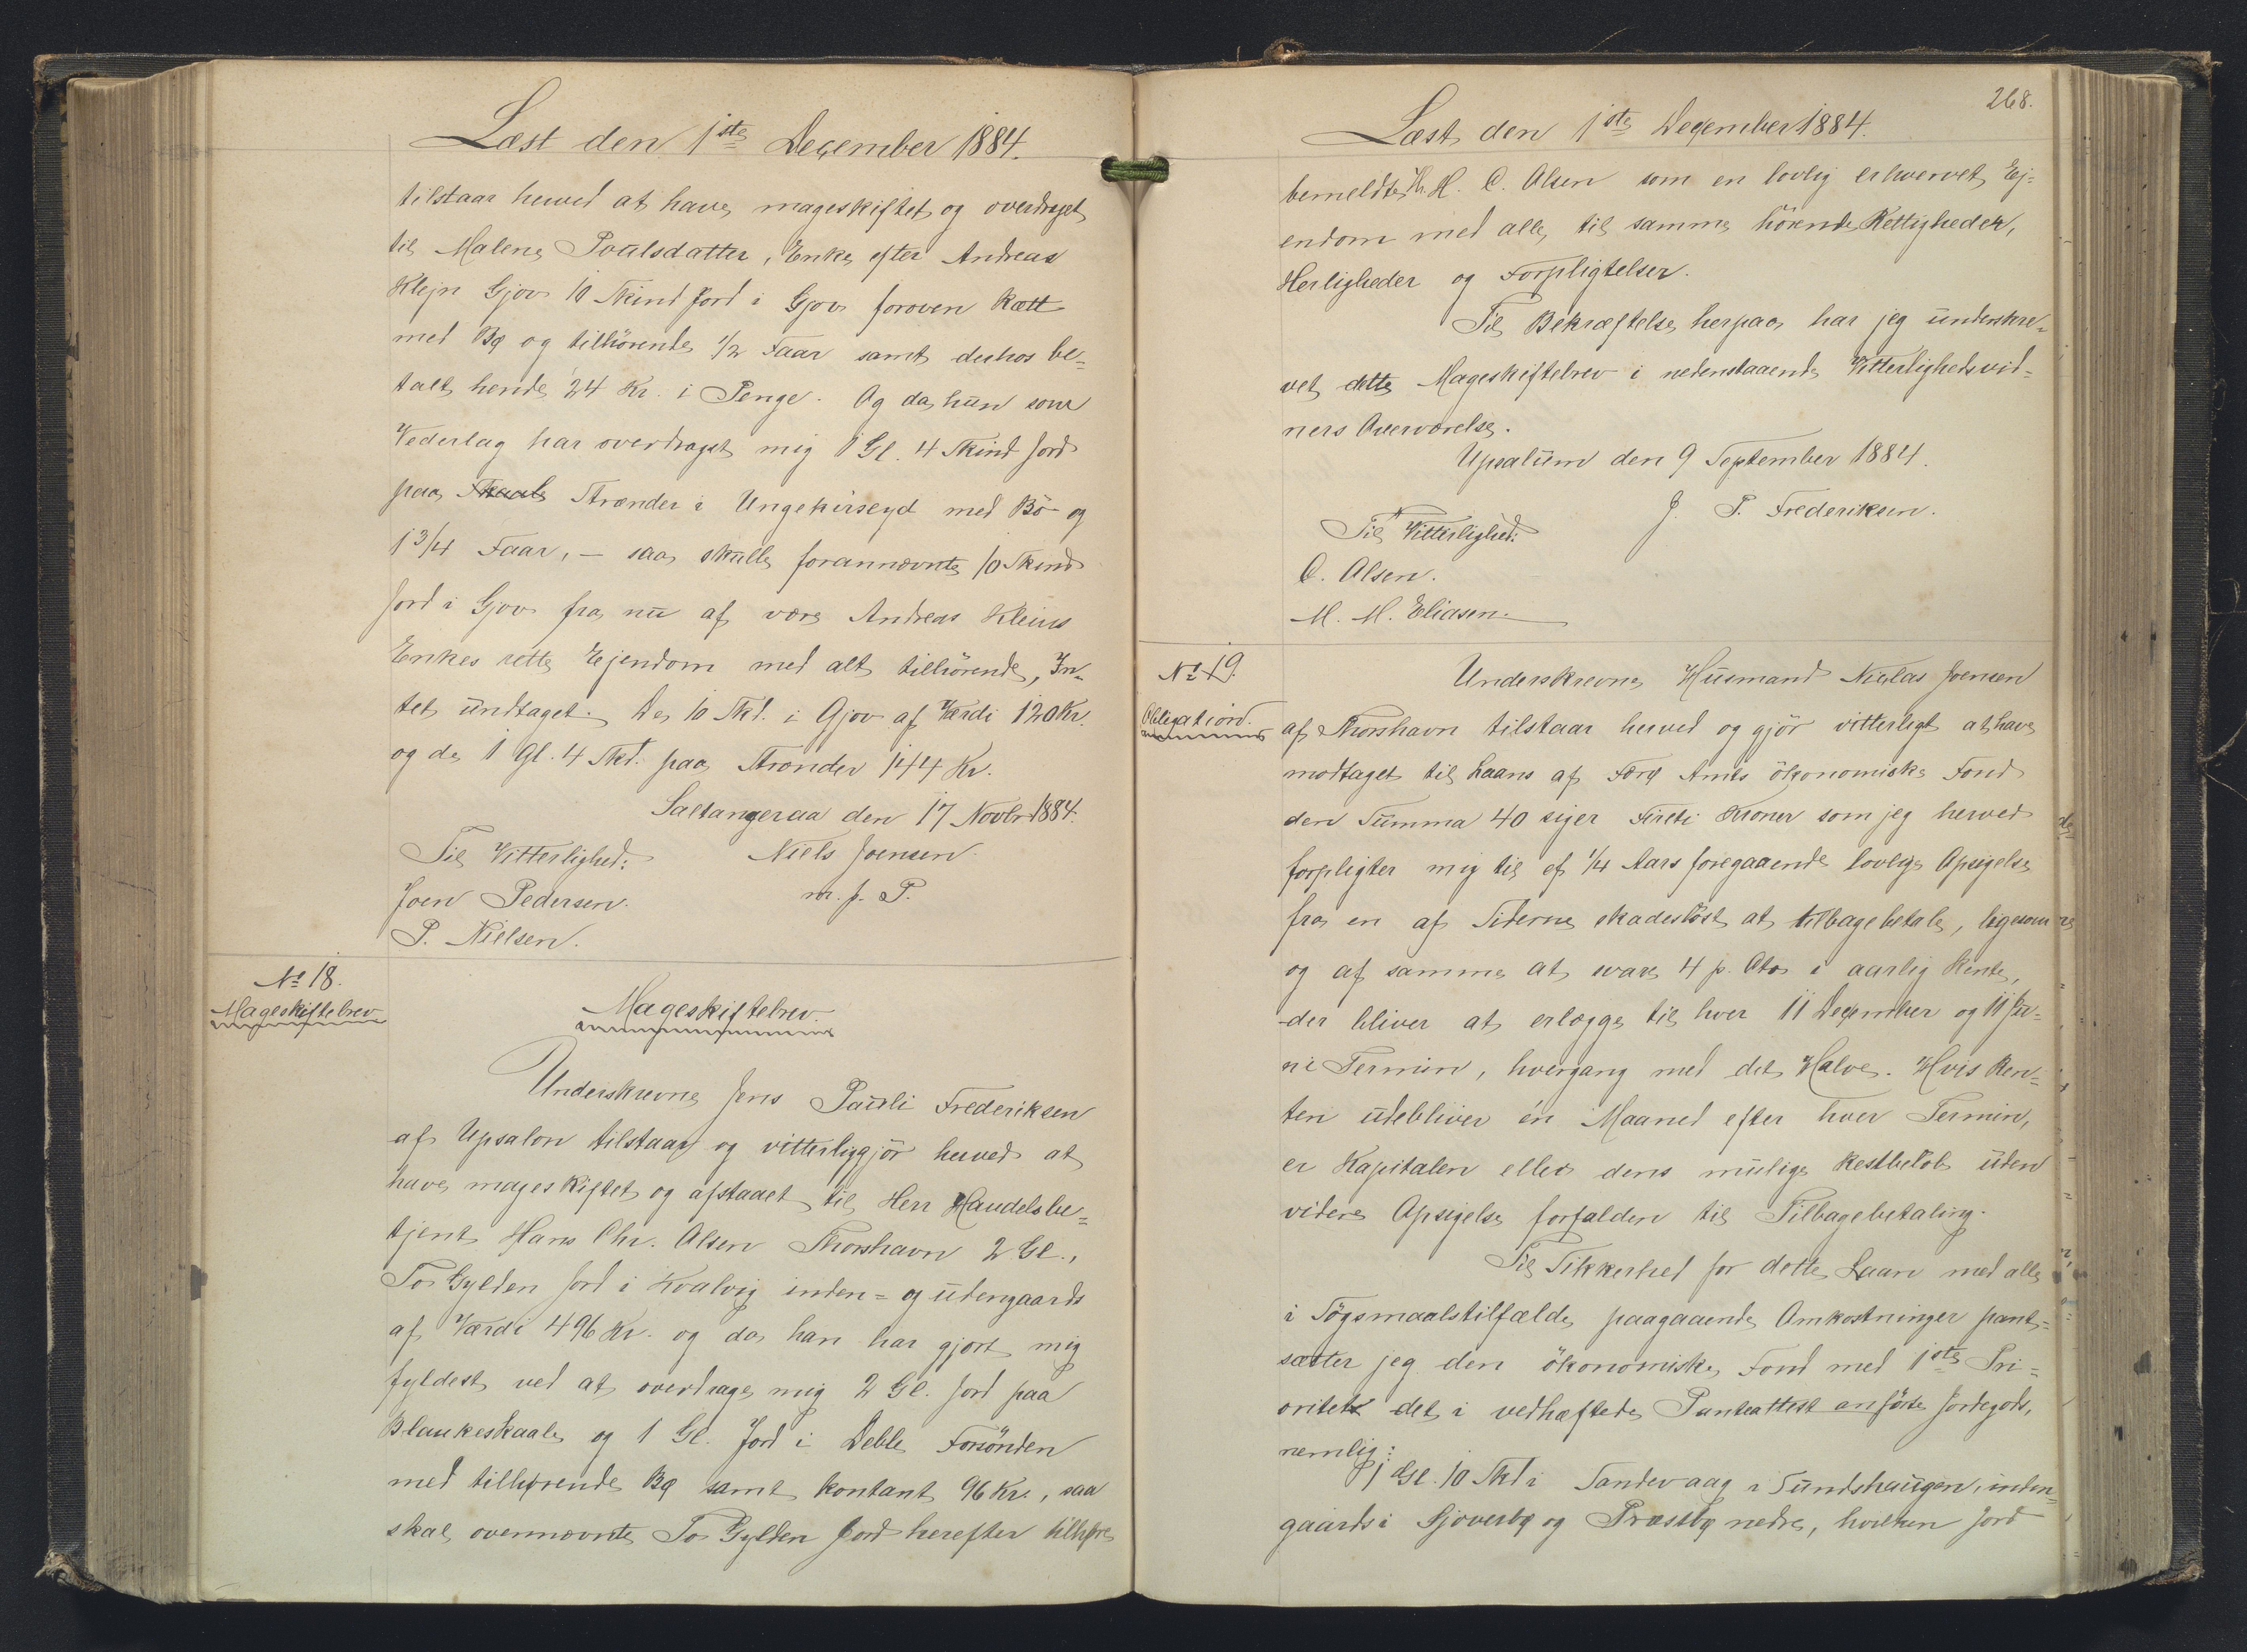 Læst den 1ste December 1884.
tilstaar herved at have mageskiftet og overdraget
til Malene Poulsdatter, Enke efter Andreas
Klejn Gjov 10 Skind Jord i Gjov foroven Kætt
med Bø og tilhörende 1/2 Faar samt derhos be=
talt hende 24 Kr. i Penge. Og da hun som
Vederlag har overdraget mig 1 Gl. 4 Skind Jord
paa Skaale Strænder i Ungekirseyd med Bö og
1 3/4 Faar, – saa skulle forannævnte 10 Skind
Jord i Gjov fra nu af være Andreas Kleins
Enkes rette Ejendom med alt tilhörende, In=
tet undtaget. De 10 Skd. i Gjov af Værdi 120 Kr.
og de 1 Gl. 4 Skd. paa Strænder 144 Kr.
Saltangeraa den 17 Novbr 1884.
Til Vitterlighed: Niels Joensen
Joen Pedersen. m. p. P.
P. Nielsen.
No 18.
Mageskiftebrev
Mageskiftebrev.
Underskrevne Jens Pauli Frederiksen
af Upsalon tilstaar og vitterliggjör herved at
have mageskiftet og afstaaet til Herr Handelsbe=
tjent Hans Chr. Olsen Thorshavn 2 Gl.,
To Gylden Jord i Kvalvig inden= og udengaards
af Værdi 496 Kr. og da han har gjort mig
fyldest ved at overdrage mig 2 Gl. Jord paa
Blankeskaale og 1 Gl. Jord i Deble Forsönden
med tilhørende Bø samt kontant 96 Kr., saa
skal ovennævnte To Gylden Jord herefter tilhøre
268.
Læst den 1ste December 1884.
bemeldte Hr. H. C. Olsen som en lovlig erhvervet Ej=
endom med alle til samme hörende Rettigheder,
Herligheder og Forpligtelser.
Til Bekræftelse herpaa har jeg underskre=
vet dette Mageskiftebrev i nedenstaaende Vitterlighedsvid=
ners Overværelse.
Upsalum den 9 September 1884.
J. P. Frederiksen.
Til Vitterlighed:
O. Olsen.
M. M. Eliasen.
No 19.
Obligation.
Underskrevne Husmand Niclas Joensen
af Thorshavn tilstaar herved og gjör vitterligt at have
modtaget til Laans af Færø Amts ökonomiske Fond
den Summa 40 siger Fireti Kroner som jeg herved
forpligter mig til ef 1/4 Aars foregaaende lovlig Opsigelse
fra en af Siderne skadeslöst at tilbagebetale, ligesom
og af samme at svare 4 p. Cto i aarlig Rente,
der bliver at erlægge til hver 11 December og 11 Ju=
ni Termin, hvergang med det Halve. Hvis Ren=
ten udebliver én Maaned efter hver Termin,
er Kapitalen eller dens mulige Restbelöb uden
videre Opsigelse forfalden til Tilbagebetaling.
Til Sikkerhed for dette Laan med alle
i Sögsmaalstilfælde paagaaende Omkostninger pant=
sætter jeg den ökonomiske Fond med 1ste Pri=
oritet det i vedhæftede Panteattest anförte Jordegods,
nemlig:
1 Gl. 10 Skd i Sandevaag i Sundshaugen, inden=
gaards i Gjoverbø og Præstbø nedre, hvilken Jord